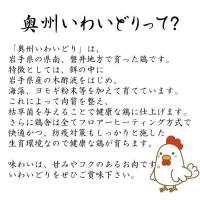 奥州いわいどりって？
「奥州いわいどり」は、
岩手県の県南、磐井地方で育った鶏です。
特徴としては、餌の中に
岩手県産の木酢液をはじめ、
海藻、ヨモギ粉末等を加えて育てています。
これによって肉質を整え、
枯草菌を与えることで健康な鶏に仕上げます。
さらに鶏舎は全てフロアーヒーティング方式で
快適かつ、防疫対策もしっかりと施した
生育環境なので健康な鶏が育ちます。
味わいは、甘みやコクのあるお肉です
いわいどりをぜひご賞味下さい。